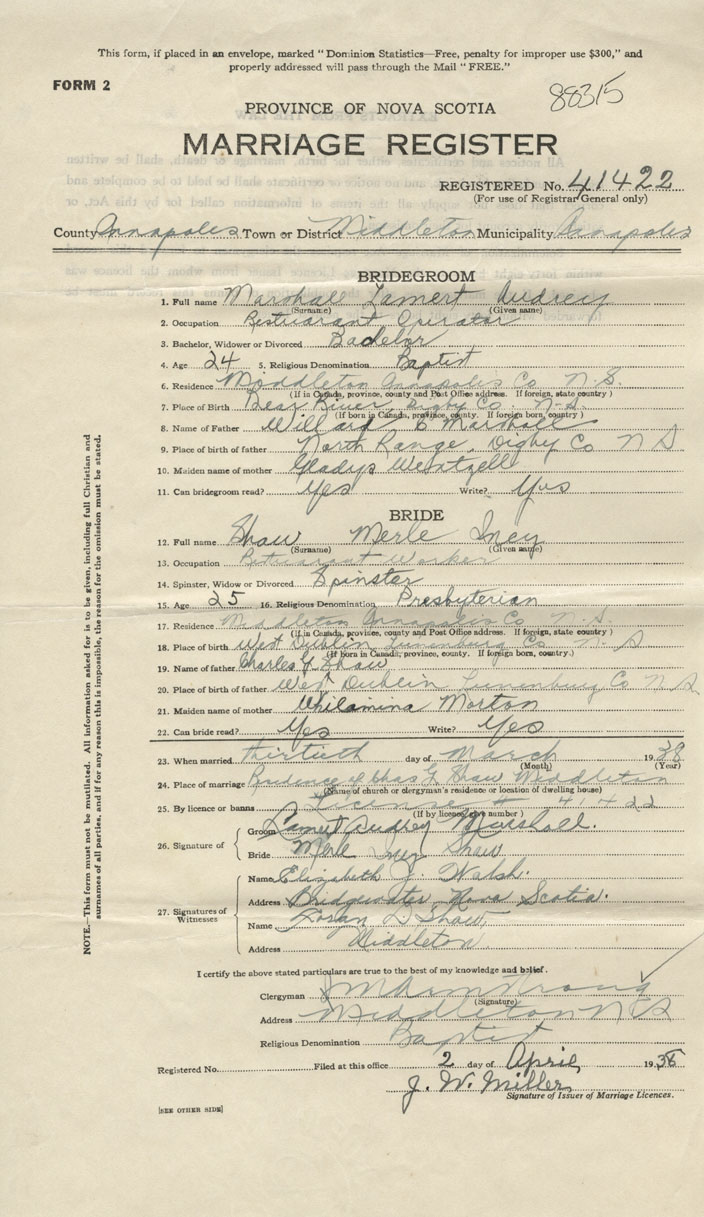 This form, if placed in an envelope, marked " Dominion Statistics—Free, penalty for improper use $300," and
properly addressed will pass through the Mail " FREE."
FORM 2
88315
PROVINCE OF NOVA SCOTIA
MARRIAGE REGISTER
REGISTERED No. 41422
(For use of Registrar General only)
County Annapolis Town or District Middleton Municipality Annapolis
BRIDEGROOM
1. Full name Marshall Lamert Audrey
(Surname) (Given name)
2. Occupation Restuarant Operator
3. Bachelor, Widower or Divorced Bachelor
4. Age 24 5. Religious Denomination Baptist
6. Residence Middleton Annapolis Co N.S.
(If in Canada, province, county and Post Office address. If foreign, state country )
7. Place of Birth Bear River, Digby Co. N.S.
(If born in Canada, province, county. If foreign born, country )
8. Name of Father Willard E Marshall
9. Place of birth of father North Range, Digby Co N S
10. Maiden name of mother Gladys Wentzell
11. Can bridegroom read? Yes Write? Yes
BRIDE
12. Full name Shaw Merle Iney
(Surname) (Given name)
13. Occupation Restuarant Worker
14. Spinster, Widow or Divorced Spinster
15. Age 25 16. Religious Denomination Presbyterian
17. Residence Middleton Annapolis Co N.S.
(If in Canada, province, county and Post Office address. If foreign, state country )
18. Place of birth West Dublin Lunenburg Co N S
(If born in Canada, province, county. If foreign born, country.)
19. Name of father Charles G Shaw
20. Place of birth of father West Dublin Lunenburg Co N S
21. Maiden name of mother Whilamina Morton
22. Can bride read? Yes Write? Yes
23. When married thirtieth day of March 19 38
(Month) (Year)
24. Place of marriage Residence of Chas G Shaw Middleton
(Name of church or clergyman's residence or location of dwelling house)
25. By licence or banns License # 41422
(If by licence, give number )
26. Signature of
Groom Lamert Audrey Marshall.
Bride Merle Iney Shaw
27. Signatures of Witnesses
Name Elizabeth J. Walsh.
Address Bridgewater Nova Scotia.
Name L. Shaw,
Address Middleton
I certify the above stated particulars are true to the best of my knowledge and belief.
Clergyman
(Signature)
Address Middleton N S
Religious Denomination Baptist
Registered No. Filed at this office 2 day of April 19 38
J. W. Miller
Signature of Issuer of Marriage Licences.
[SEE OTHER SIDE]
NOTE.—This form must not be mutilated. All information asked for is to be given, including full Christian and
surnames of all parties, and if for any reason this is impossible, the reason for the omission must be stated.